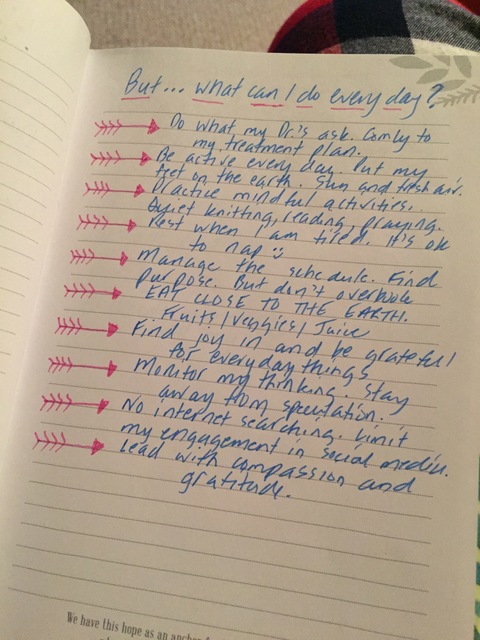 But... what can I do every day?
Do what my Dr's ask. Comly to
my treatment plan.
Be active every day. Put my
feet on the earth. Sun and fresh air.
Practice mindful activities.
Quiet knitting, reading, praying.
Rest when I am tired. It's ok
to nap
Manage the schedule. Find
purpose. But don't overbook
EAT CLOSE TO THE EARTH.
Fruits/Veggies/Juice
Find joy in and be grateful
for everyday things
Monitor my thinking. Stay
away from speculation.
No internet searching. Limit
my engagement in social media.
Lead with compassion and
gratitude.
We have this hope as an anchor